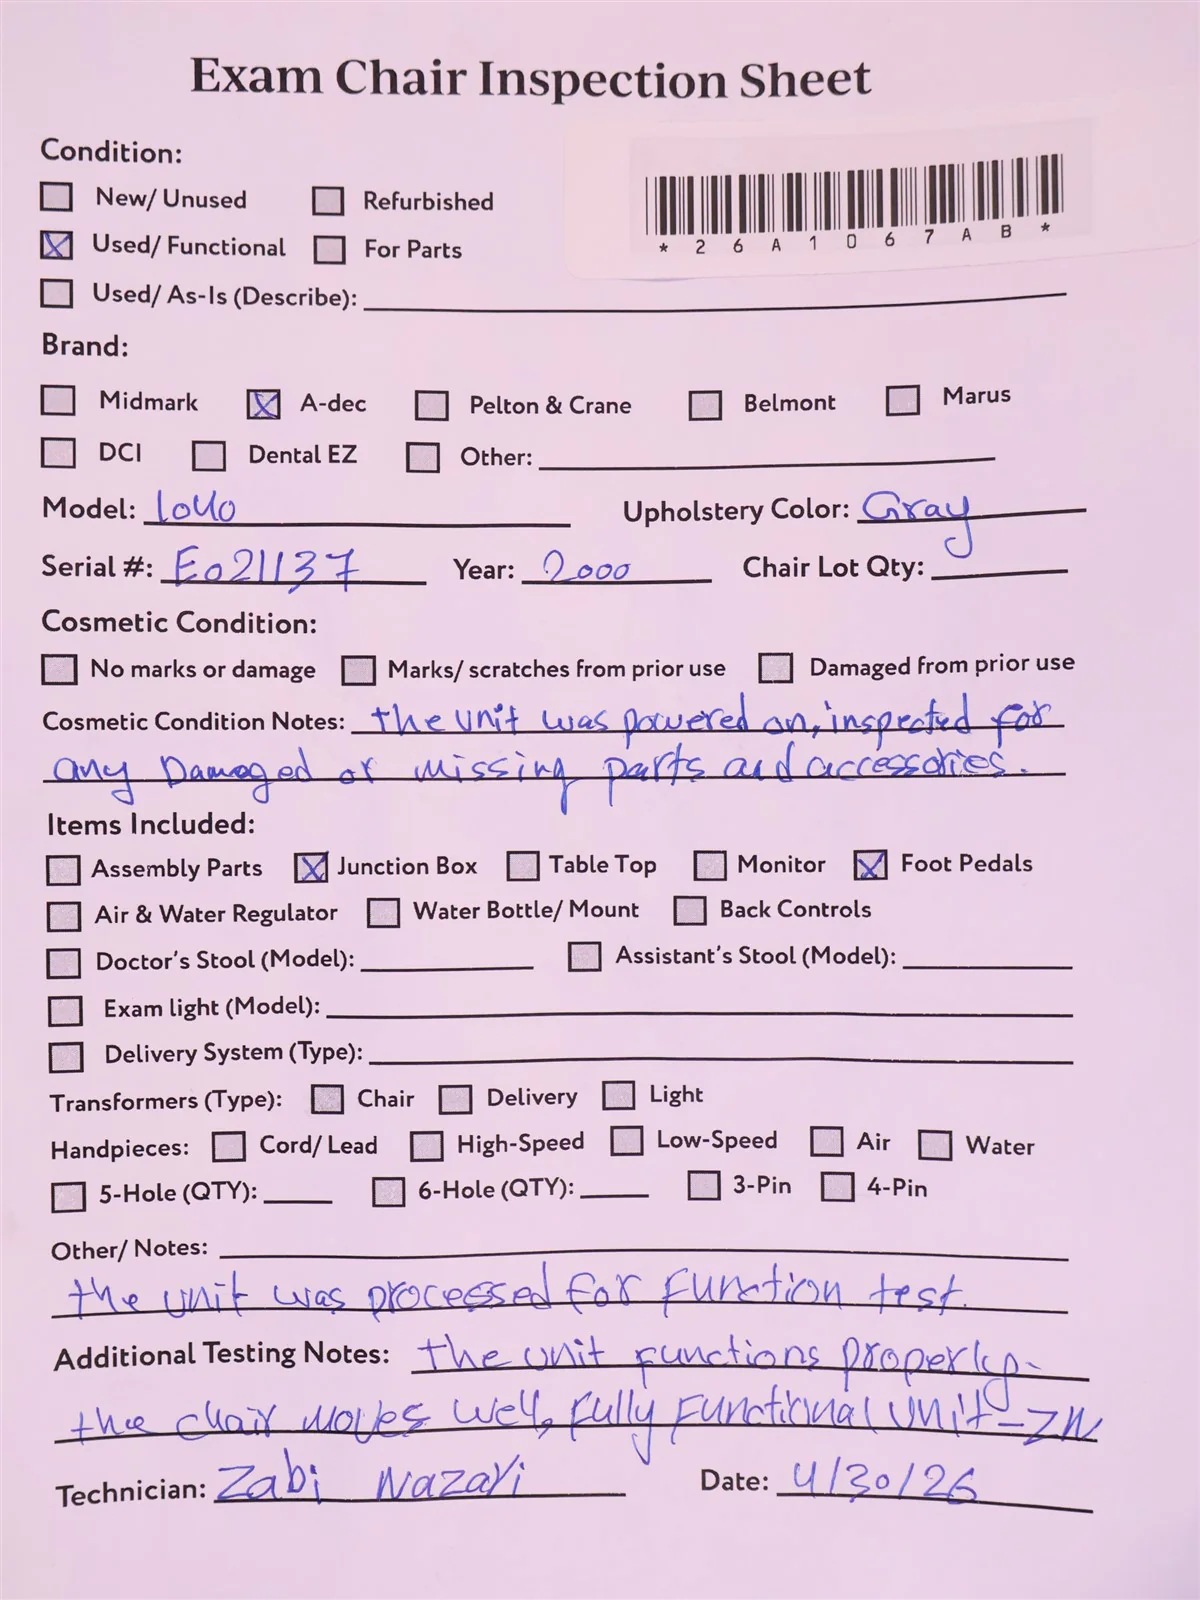 Exam Chair Inspection Sheet
Condition:
New/ Unused Refurbished
Used/ Functional For Parts
*26A1067AB*
Used/ As-Is (Describe):
Brand:
Midmark A-dec Pelton & Crane Belmont Marus
DCI Dental EZ Other:
Model: 1040 Upholstery Color: Gray
Serial #: E021137 Year: 2000 Chair Lot Qty:
Cosmetic Condition:
No marks or damage Marks/ scratches from prior use Damaged from prior use
Cosmetic Condition Notes: the unit was powered on, inspected for
any Damaged or missing parts and accessories.
Items Included:
Assembly Parts Junction Box Table Top Monitor Foot Pedals
Air & Water Regulator Water Bottle/ Mount Back Controls
Doctor's Stool (Model): Assistant's Stool (Model):
Exam light (Model):
Delivery System (Type):
Transformers (Type): Chair Delivery Light
Handpieces: Cord/ Lead High-Speed Low-Speed Air Water
5-Hole (QTY): 6-Hole (QTY): 3-Pin 4-Pin
Other/ Notes:
the unit was processed for function test.
Additional Testing Notes: the unit functions properly.
the chair moves well, fully functional unit - ZN
Technician: Zabi Nazari Date: 4/30/26